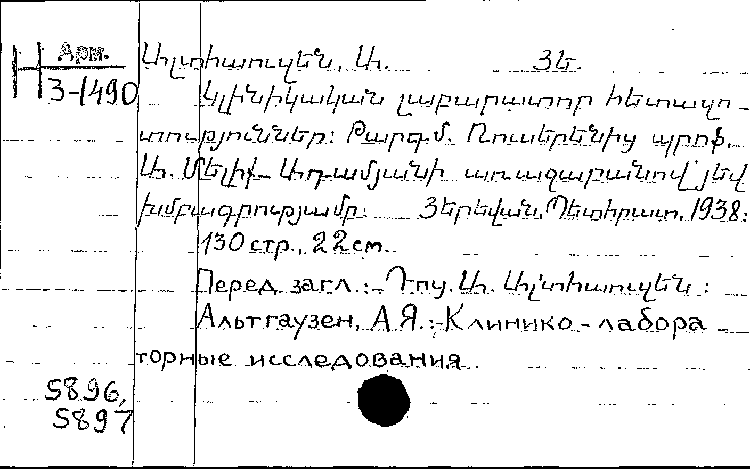 Арм.
H 3-1490
Ալտհաուզեն, Ա. Յե.
Կլինիկական լաբարատոր հետազո-
տություններ: Թարգմ. Ռուսերենից պրոֆ.
Ա. Մելիք-Ադամյանի առաջաբանով յեվ
խմբագրությամբ: Յերեվան, Պետհրատ, 1938:
130 стр., 22 см.
Перед загл.: Դոց. Ա. Ալտհաուզեն:
Альтгаузен, А.Я.: Клинико-лабора
торные исследования
5896,
5897